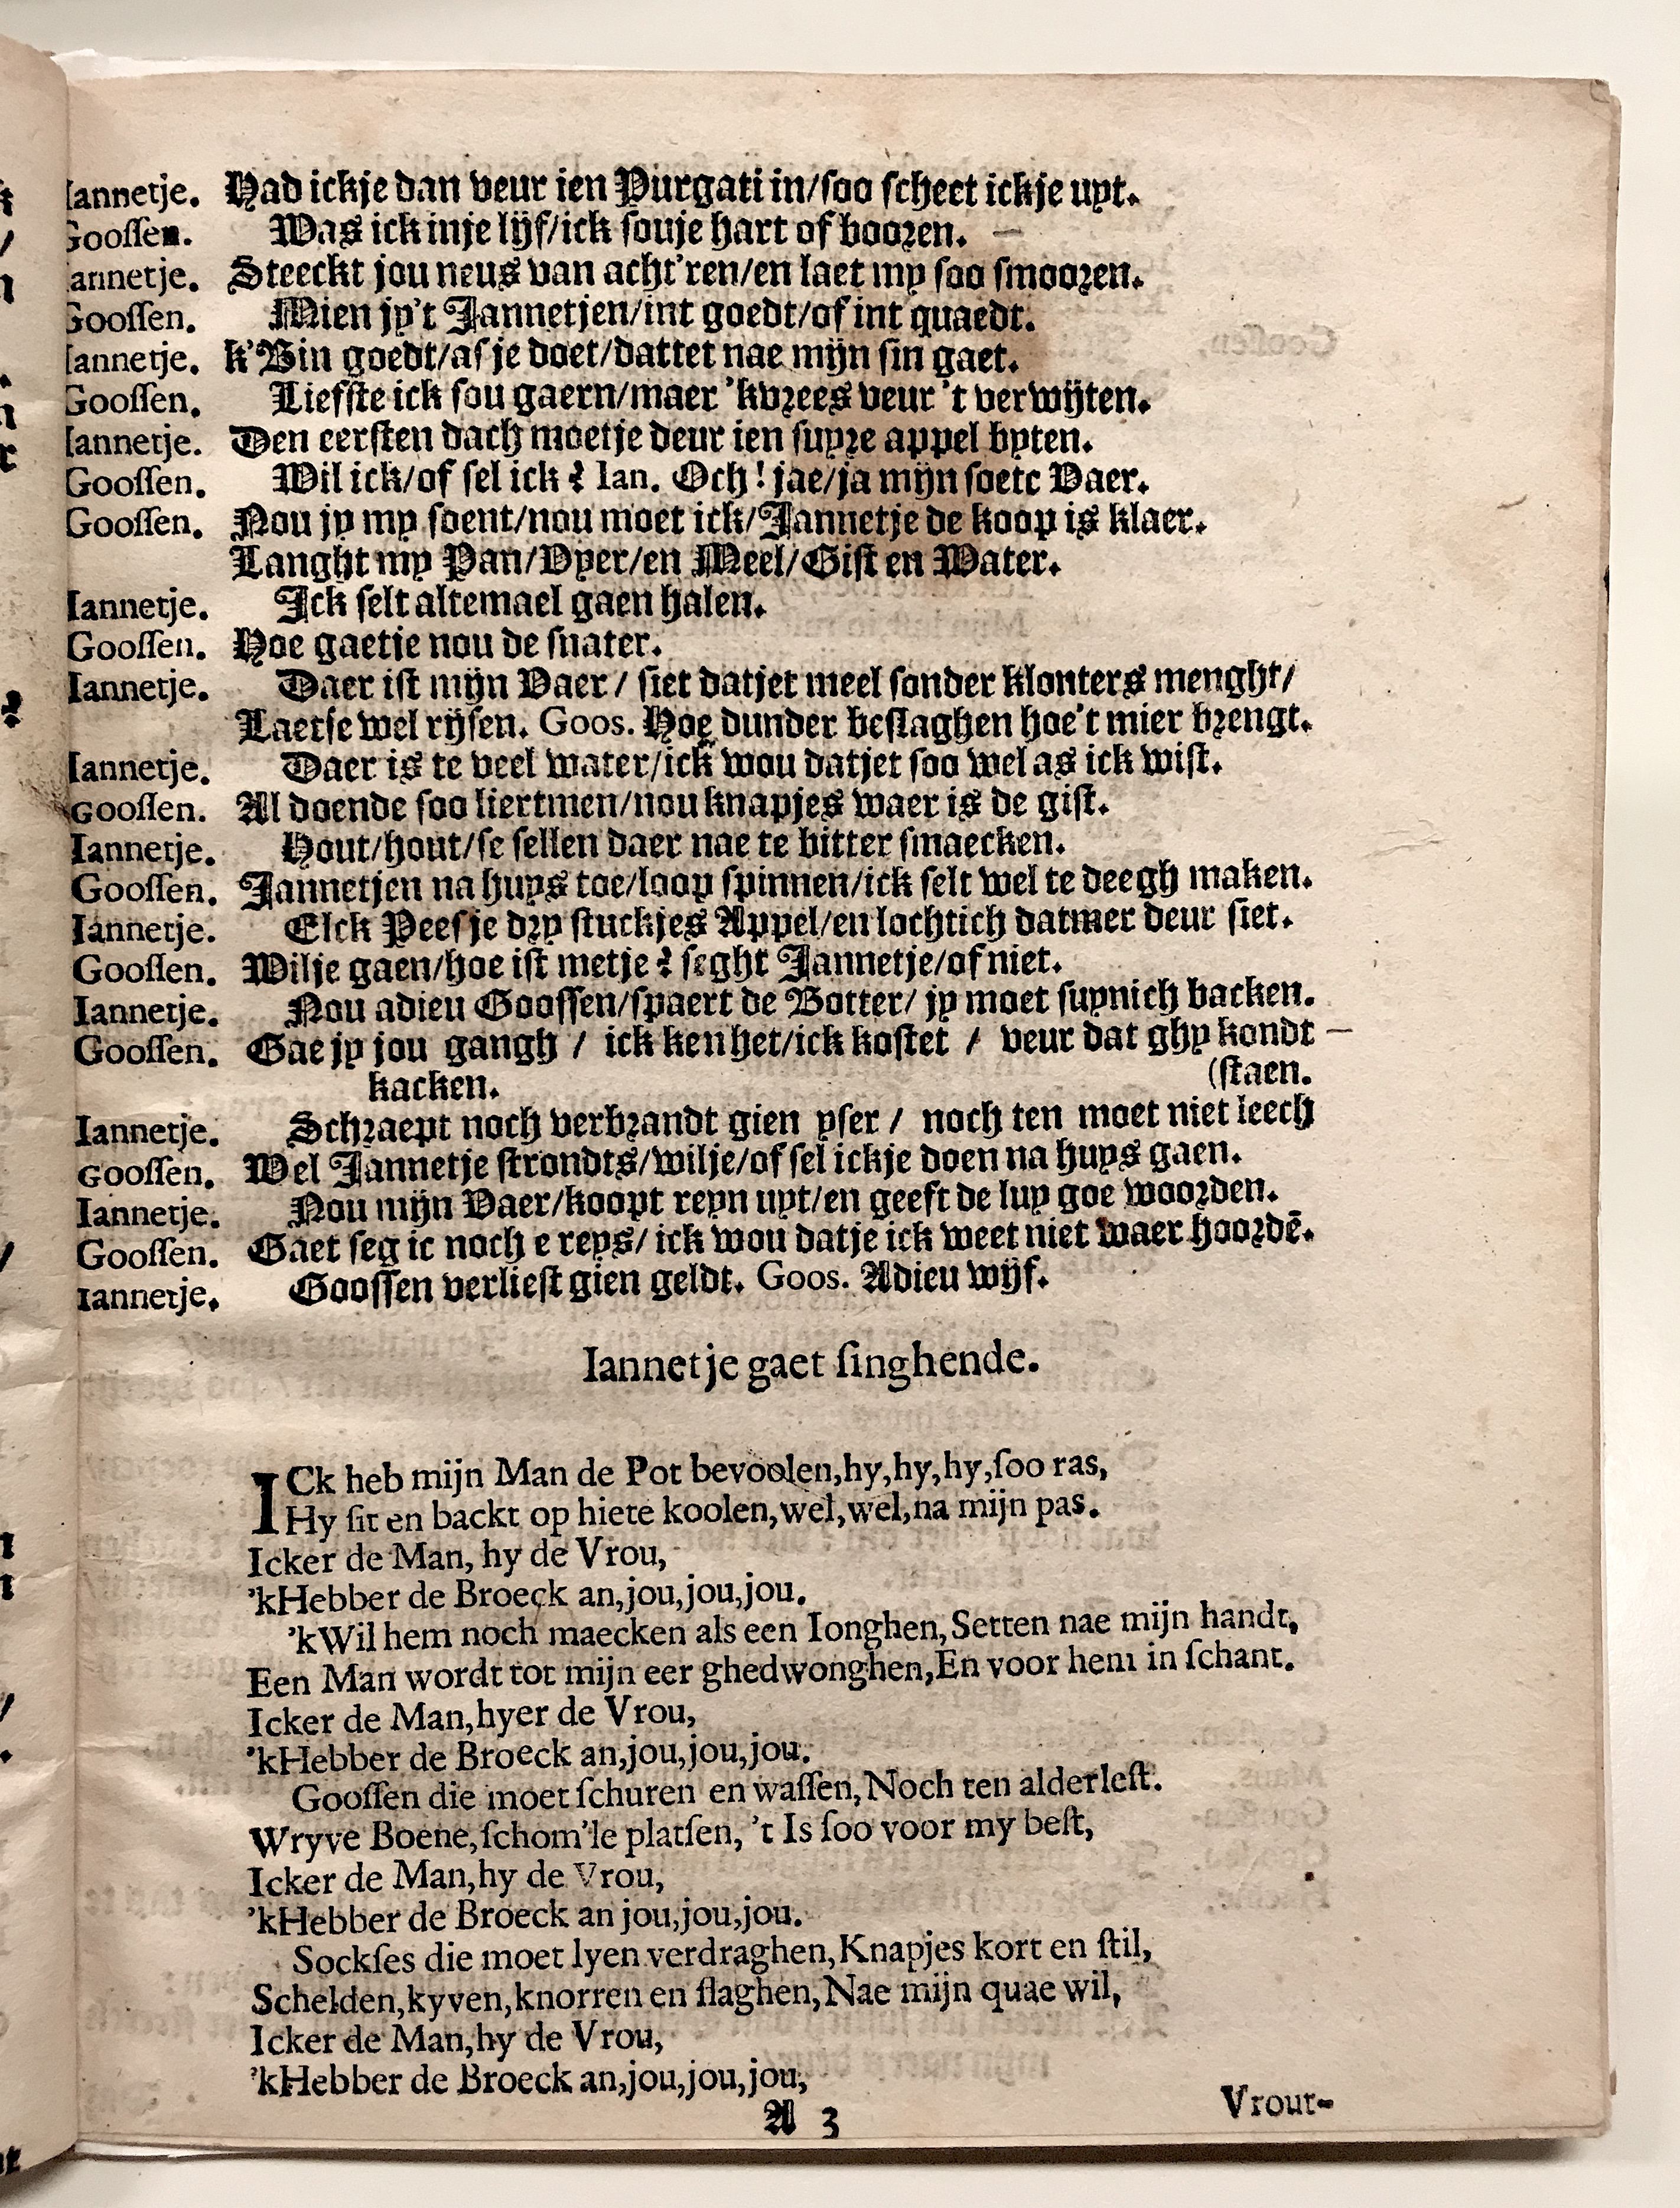 Iannetje. Had ickje dan veur ien Purgati in/soo scheet ickje uyt.
Goossen. Was ick inje lijf/ick souje hart of booren.
Iannetje. Steeckt jou neus van acht'ren/en laet my soo smooren.
Goossen. Mien jy't Jannetjen/int goedt/of int quaedt.
Iannetje. k'Bin goedt/as je doet/dattet nae mijn sin gaet.
Goossen. Liefste ick sou gaern/maer 'kvrees veur 't verwijten.
Iannetje. Den eersten dach moetje deur ien suyre appel byten.
Goossen. Wil ick/of sel ick? Ian. Och! jae/ja mijn soete Vaer.
Goossen. Nou jy my soent/nou moet ick/Jannetje de koop is klaer.
Langht my Pan/Vyer/en Meel/Gist en Water.
Iannetje. Ick selt altemael gaen halen.
Goossen. Hoe gaetje nou de snater.
Iannetje. Daer ist mijn Vaer / siet datjet meel sonder klonters menght/
Laetse wel rijsen. Goos. Hoe dunder beslaghen hoe't mier brengt.
Iannetje. Daer is te veel water/ick wou datjet soo wel as ick wist.
Goossen. Al doende soo liertmen/nou knapjes waer is de gist.
Iannetje. Hout/hout/se sellen daer nae te bitter smaecken.
Goossen. Jannetjen na huys toe/loop spinnen/ick selt wel te deegh maken.
Iannetje. Elck Peesje dry stuckjes Appel/en lochtich datmer deur siet.
Goossen. Wilje gaen/hoe ist metje? seght Jannetje/of niet.
Iannetje. Nou adieu Goossen/spaert de Botter/ jy moet suynich backen.
Goossen. Gae jy jou gangh / ick ken het/ick kostet / veur dat ghy kondt
kacken. (staen.
Iannetje. Schraept noch verbrandt gien yser / noch ten moet niet leech
Goossen. Wel Jannetje strondts/wilje/of sel ickje doen na huys gaen.
Iannetje. Nou mijn Vaer/koopt reyn uyt/en geeft de luy goe woorden.
Goossen. Gaet seg ic noch e reys/ ick wou datje ick weet niet waer hoordē.
Iannetje. Goossen verliest gien geldt. Goos. Adieu wijf.
Iannetje gaet singhende.
ICk heb mijn Man de Pot bevoolen,hy,hy,hy,soo ras,
Hy sit en backt op hiete koolen,wel,wel,na mijn pas.
Icker de Man, hy de Vrou,
'kHebber de Broeck an,jou,jou,jou.
'kWil hem noch maecken als een Ionghen,Setten nae mijn handt,
Een Man wordt tot mijn eer ghedwonghen,En voor hem in schant.
Icker de Man,hyer de Vrou,
'kHebber de Broeck an,jou,jou,jou.
Goossen die moet schuren en wassen,Noch ten alderlest.
Wryve Boene,schom'le platsen, 't Is soo voor my best,
Icker de Man,hy de Vrou,
'kHebber de Broeck an jou,jou,jou.
Sockses die moet lyen verdraghen,Knapjes kort en stil,
Schelden,kyven,knorren en slaghen,Nae mijn quae wil,
Icker de Man,hy de Vrou,
'kHebber de Broeck an,jou,jou,jou,
A 3 Vrout-